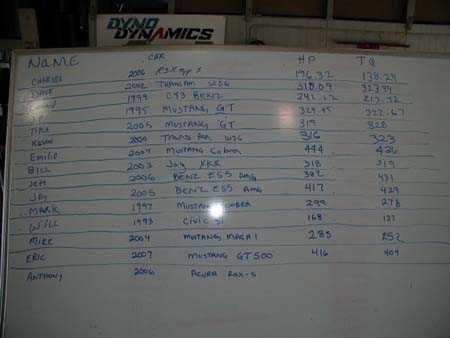 DYNO
DYNAMICS
NAME CAR HP TQ
CHARLES 2006 RSX Typ S 196.32 138.24
DAVE 2002 TRANSAM WS6 318.09
1999 C43 BENZ 241.12
J.P. 1995 MUSTANG GT 322.67
TIM 2005 MUSTANG GT 319 328
KEVIN TRANS AM WS6 316 323
Emilio 2004 MUSTANG Cobra 444 426
BILL 2003 Jag XKR 318 319
Jeff 2006 BENZ E55 AMG 382 431
Jay 2005 BENZ E55 AMG 417 429
MARK 1997 MUSTANG COBRA 299 278
Will 1993 CIVIC Si 168 127
Mike 2004 MUSTANG MACH 1 285 252
ERIC 2007 MUSTANG GT500 416 409
ANTHONY 2006 ACURA RSX-S